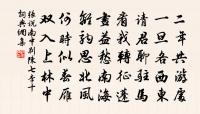 二年共游處
一旦各西東
請君聊駐馬
看我轉征蓬
畫鷁愁南海
離駒思北風
何時似春雁
雙入上林中
張說南中別陳七李十
詞典網集